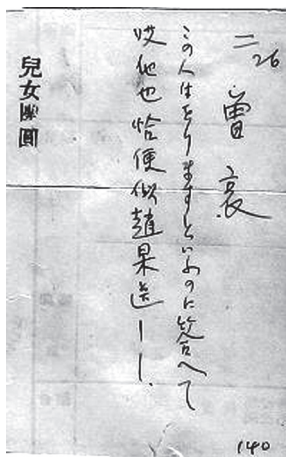 二 26
曾哀
この人はをりますといふのに答へて
哎他也恰便似趙杲送——.
兒女團圓
140